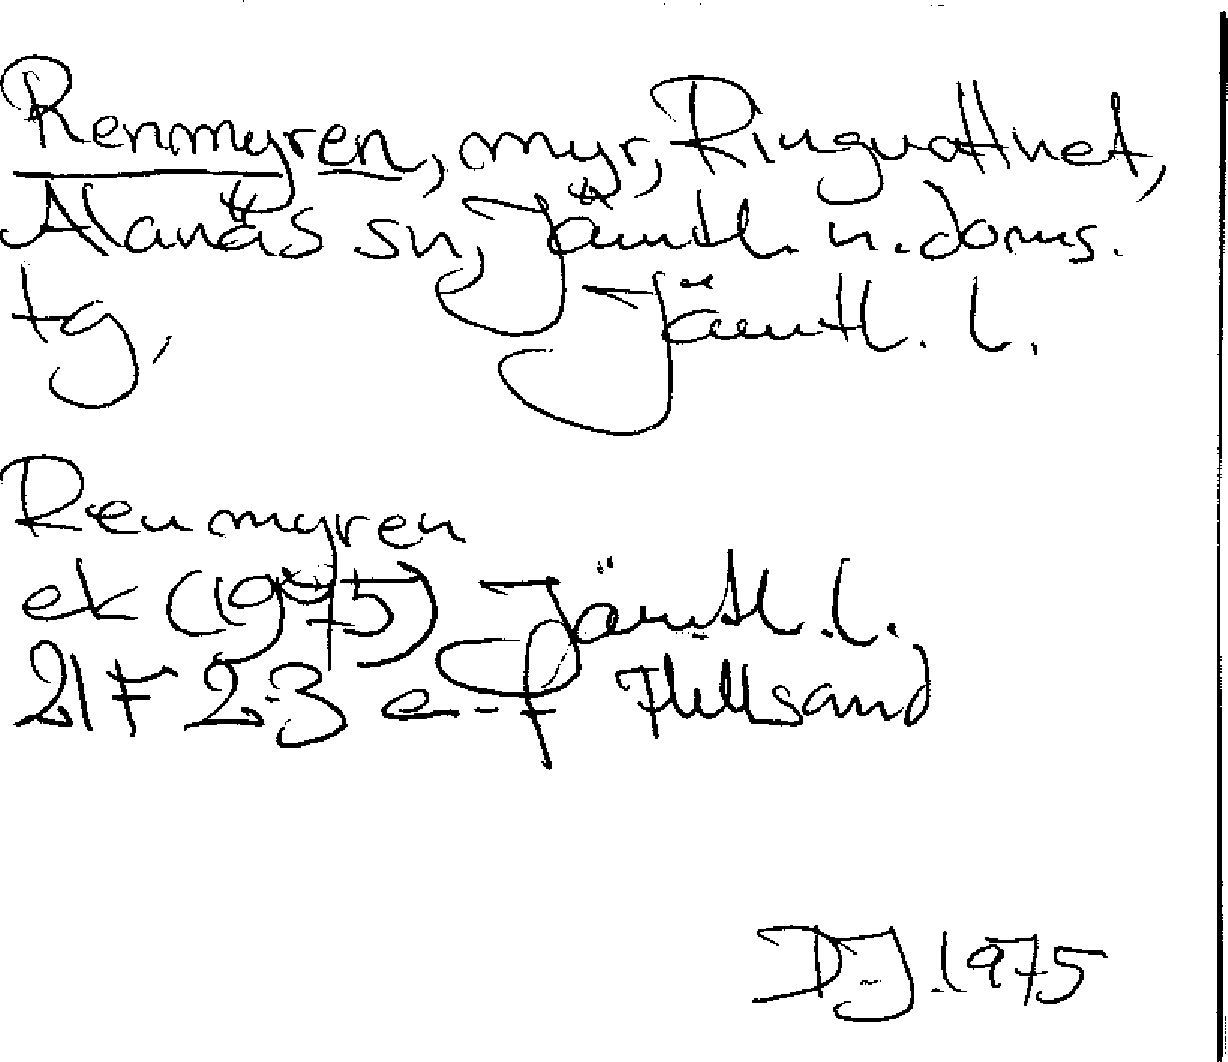 Renmyren, myr, Ringvattnet,
Alanäs sn, Jämtl. n. doms.
tg, Jämtl. l.
Renmyren
ek (1975) Jämtl. l.
21F 2-3 e-f
DJ 1975